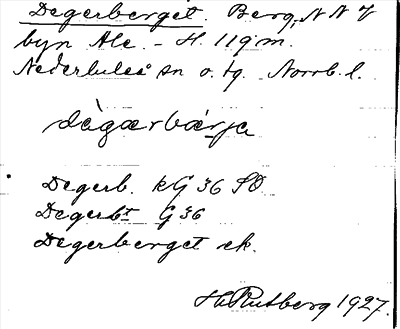 Degerberget. Berg, N N V
byn Ale. - H. 119 m.
Nederluleå sn o. tg. Norrb. l.
dègærbærja
Degerb. kG 36 SO
Degerbt G 36
Degerberget ek.
H. Rutberg 1927.